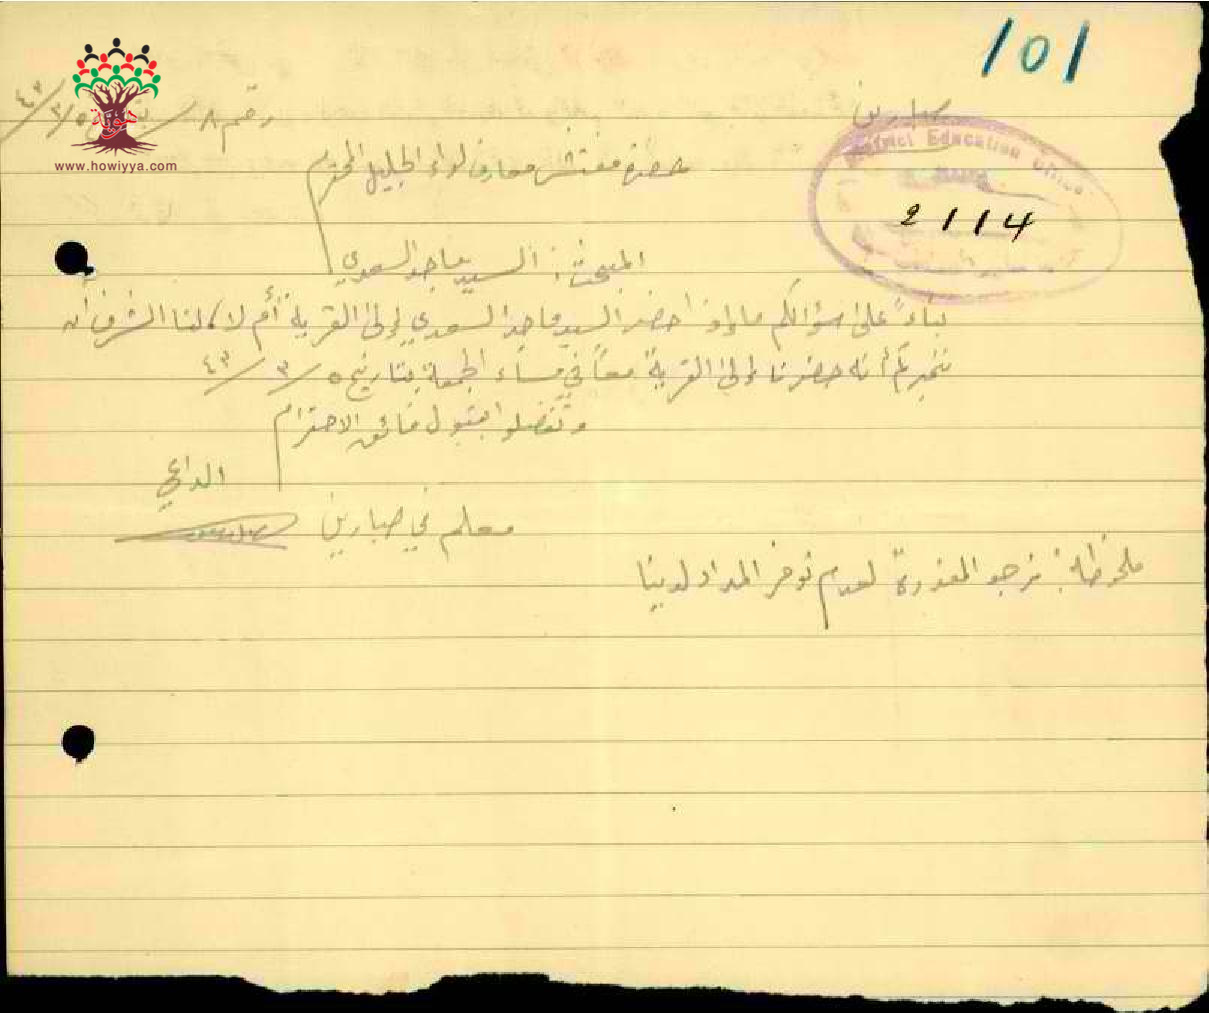 101
صبارين
رقم ٨
٤٣/٣/٥
هوية
www.howiyya.com
District Education Office
2114
حضرة مفتش معارف لواء الجليل المحترم
المبحث: السيد ماجد السعدي
بناءً على سؤالكم ما إذا حضر السيد ماجد السعدي إلى القرية أم لا لنا الشرف أن
نخبركم أنه حضرنا إلى القرية معاً في مساء الجمعة بتاريخ ٤٣/٣/٥
وتفضلوا بقبول فائق الاحترام
الداعي
معلم في صبارين
ملحوظة: نرجو المعذرة لعدم توفر المداد لدينا